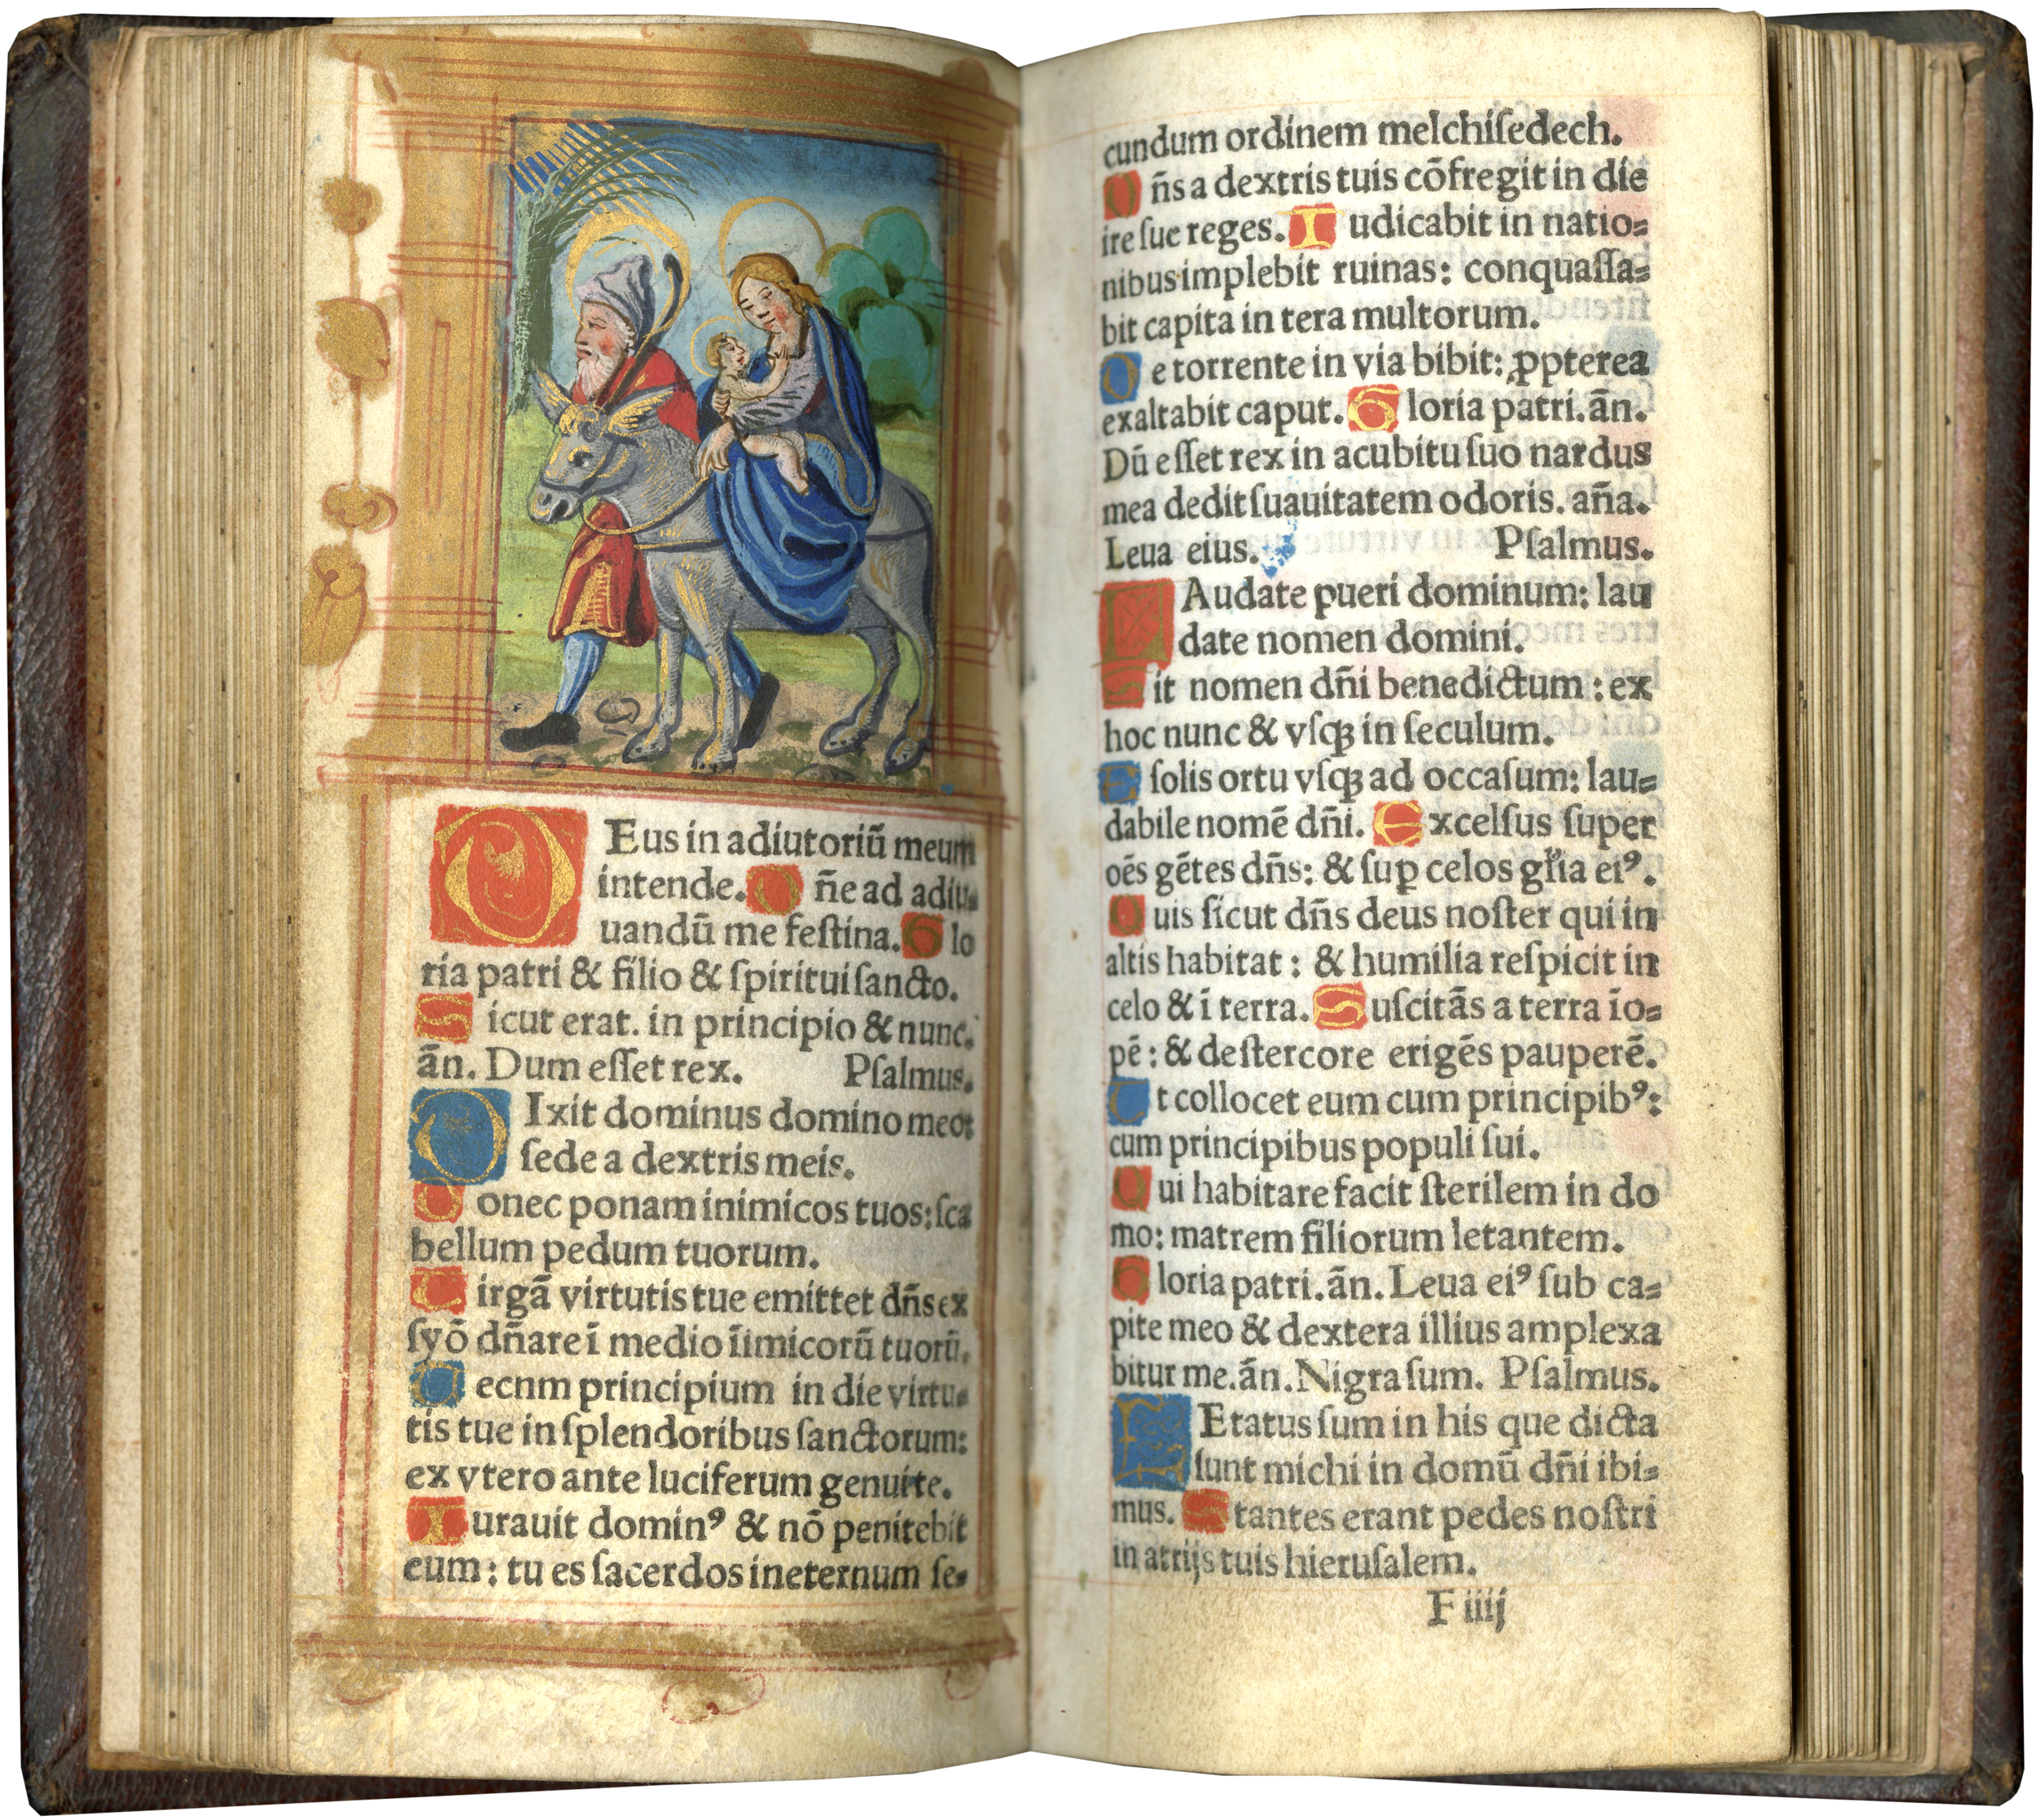 DEus in adiutoriū meum
intende. Dñe ad adiu-
uandū me feſtina. Glo
ria patri & filio & ſpiritui ſancto.
Sicut erat. in principio & nunc.
ān. Dum eſſet rex. Pſalmus.
DIxit dominus domino meo:
ſede a dextris meis.
Donec ponam inimicos tuos: ſca
bellum pedum tuorum.
Virgā virtutis tue emittet dñs ex
ſyō dñare ī medio īimicorū tuorū.
Tecnm principium in die virtu-
tis tue in ſplendoribus ſanctorum:
ex vtero ante luciferum genui te.
Iurauit dominꝰ & nō penitebit
eum: tu es ſacerdos ineternum ſe-
cundum ordinem melchiſedech.
Dñs a dextris tuis cōfregit in die
ire ſue reges. Iudicabit in natio-
nibus implebit ruinas: conquaſſa-
bit capita in tera multorum.
De torrente in via bibit: ꝓpterea
exaltabit caput. Gloria patri. ān.
Dū eſſet rex in acubitu ſuo nardus
mea dedit ſuauitatem odoris. aña.
Leua eius. Pſalmus.
LAudate pueri dominum: lau
date nomen domini.
Sit nomen dñi benedictum: ex
hoc nunc & vſqꝫ in ſeculum.
E ſolis ortu vſqꝫ ad occaſum: lau-
dabile nomē dñi. Excelſus ſuper
oēs gētes dñs: & ſuꝑ celos gľia eiꝰ.
Quis ſicut dñs deus noſter qui in
altis habitat: & humilia reſpicit in
celo & ī terra. Suſcitās a terra īo-
pē: & de ſtercore erigēs pauperē.
Ut collocet eum cum principibꝰ:
cum principibus populi ſui.
Qui habitare facit ſterilem in do
mo: matrem filiorum letantem.
Gloria patri. ān. Leua eiꝰ ſub ca-
pite meo & dextera illius amplexa
bitur me. ān. Nigra ſum. Pſalmus.
LEtatus ſum in his que dicta
ſunt michi in domū dñi ibi-
mus. Stantes erant pedes noſtri
in atrijs tuis hieruſalem.
F iiij